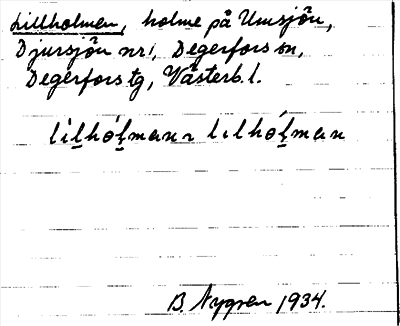 Lillholmen, holme på Umsjön,
Djursjön nr 1, Degerfors sn,
Degerfors tg, Västerb. l.
lilhólmann lilhólman
B. Nygren 1934.